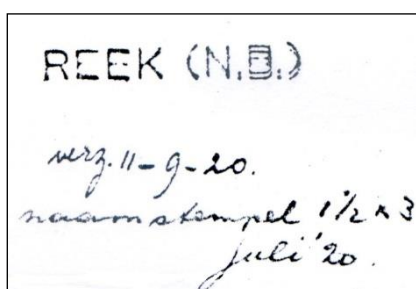 REEK (N.B.)
verz. 11-9-20.
naamstempel 1 1/2 x 3
juli '20.